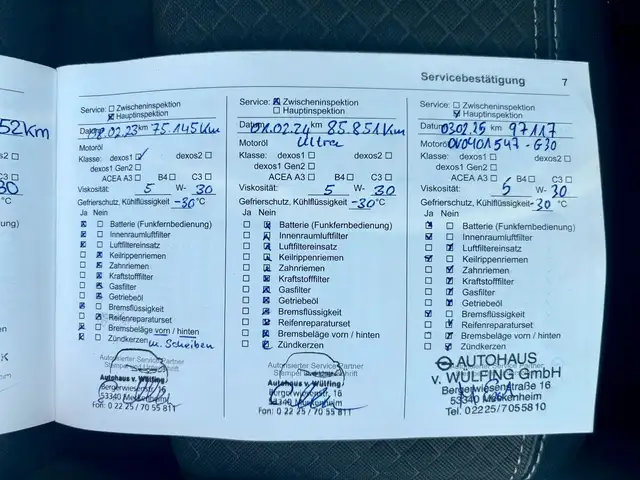 52Km
Servicebestätigung 7
Service: Zwischeninspektion
Hauptinspektion
Datum 08.02.23 km 75.145 Km
Motoröl
Klasse: dexos1 dexos2
dexos1 Gen2
ACEA A3 B4 C3
Viskosität: 5 W- 30
Gefrierschutz, Kühlflüssigkeit -30 °C
Ja Nein
Batterie (Funkfernbedienung)
Innenraumluftfilter
Luftfiltereinsatz
Keilrippenriemen
Zahnriemen
Kraftstofffilter
Gasfilter
Getriebeöl
Bremsflüssigkeit
Reifenreparaturset
Bremsbeläge vorn / hinten
Zündkerzen m. Scheiben
Autorisierter Service Partner
Autohaus v. Wülfing
Bergerwiesenstr. 16
53340 Meckenheim
Fon: 0 22 25 / 70 55 811
Service: Zwischeninspektion
Hauptinspektion
Datum 02.24 km 85.851 Km
Motoröl Ultra
Klasse: dexos1 dexos2
dexos1 Gen2
ACEA A3 B4 C3
Viskosität: 5 W- 30
Gefrierschutz, Kühlflüssigkeit -30 °C
Ja Nein
Batterie (Funkfernbedienung)
Innenraumluftfilter
Luftfiltereinsatz
Keilrippenriemen
Zahnriemen
Kraftstofffilter
Gasfilter
Getriebeöl
Bremsflüssigkeit
Reifenreparaturset
Bremsbeläge vorn / hinten
Zündkerzen
Autorisierter Service Partner
Autohaus v. Wülfing
Bergerwiesenstr. 16
53340 Meckenheim
Fon: 0 22 25 / 70 55 811
Service: Zwischeninspektion
Hauptinspektion
Datum 03.02.25 km 97117
Motoröl OV0401547-G30
Klasse: dexos1 dexos2
dexos1 Gen2
ACEA A3 B4 C3
Viskosität: 5 W- 30
Gefrierschutz, Kühlflüssigkeit -30 °C
Ja Nein
Batterie (Funkfernbedienung)
Innenraumluftfilter
Luftfiltereinsatz
Keilrippenriemen
Zahnriemen
Kraftstofffilter
Gasfilter
Getriebeöl
Bremsflüssigkeit
Reifenreparaturset
Bremsbeläge vorn / hinten
Zündkerzen
AUTOHAUS
v. WÜLFING GmbH
Bergerwiesenstraße 16
53340 Meckenheim
Tel. 02225/7055810